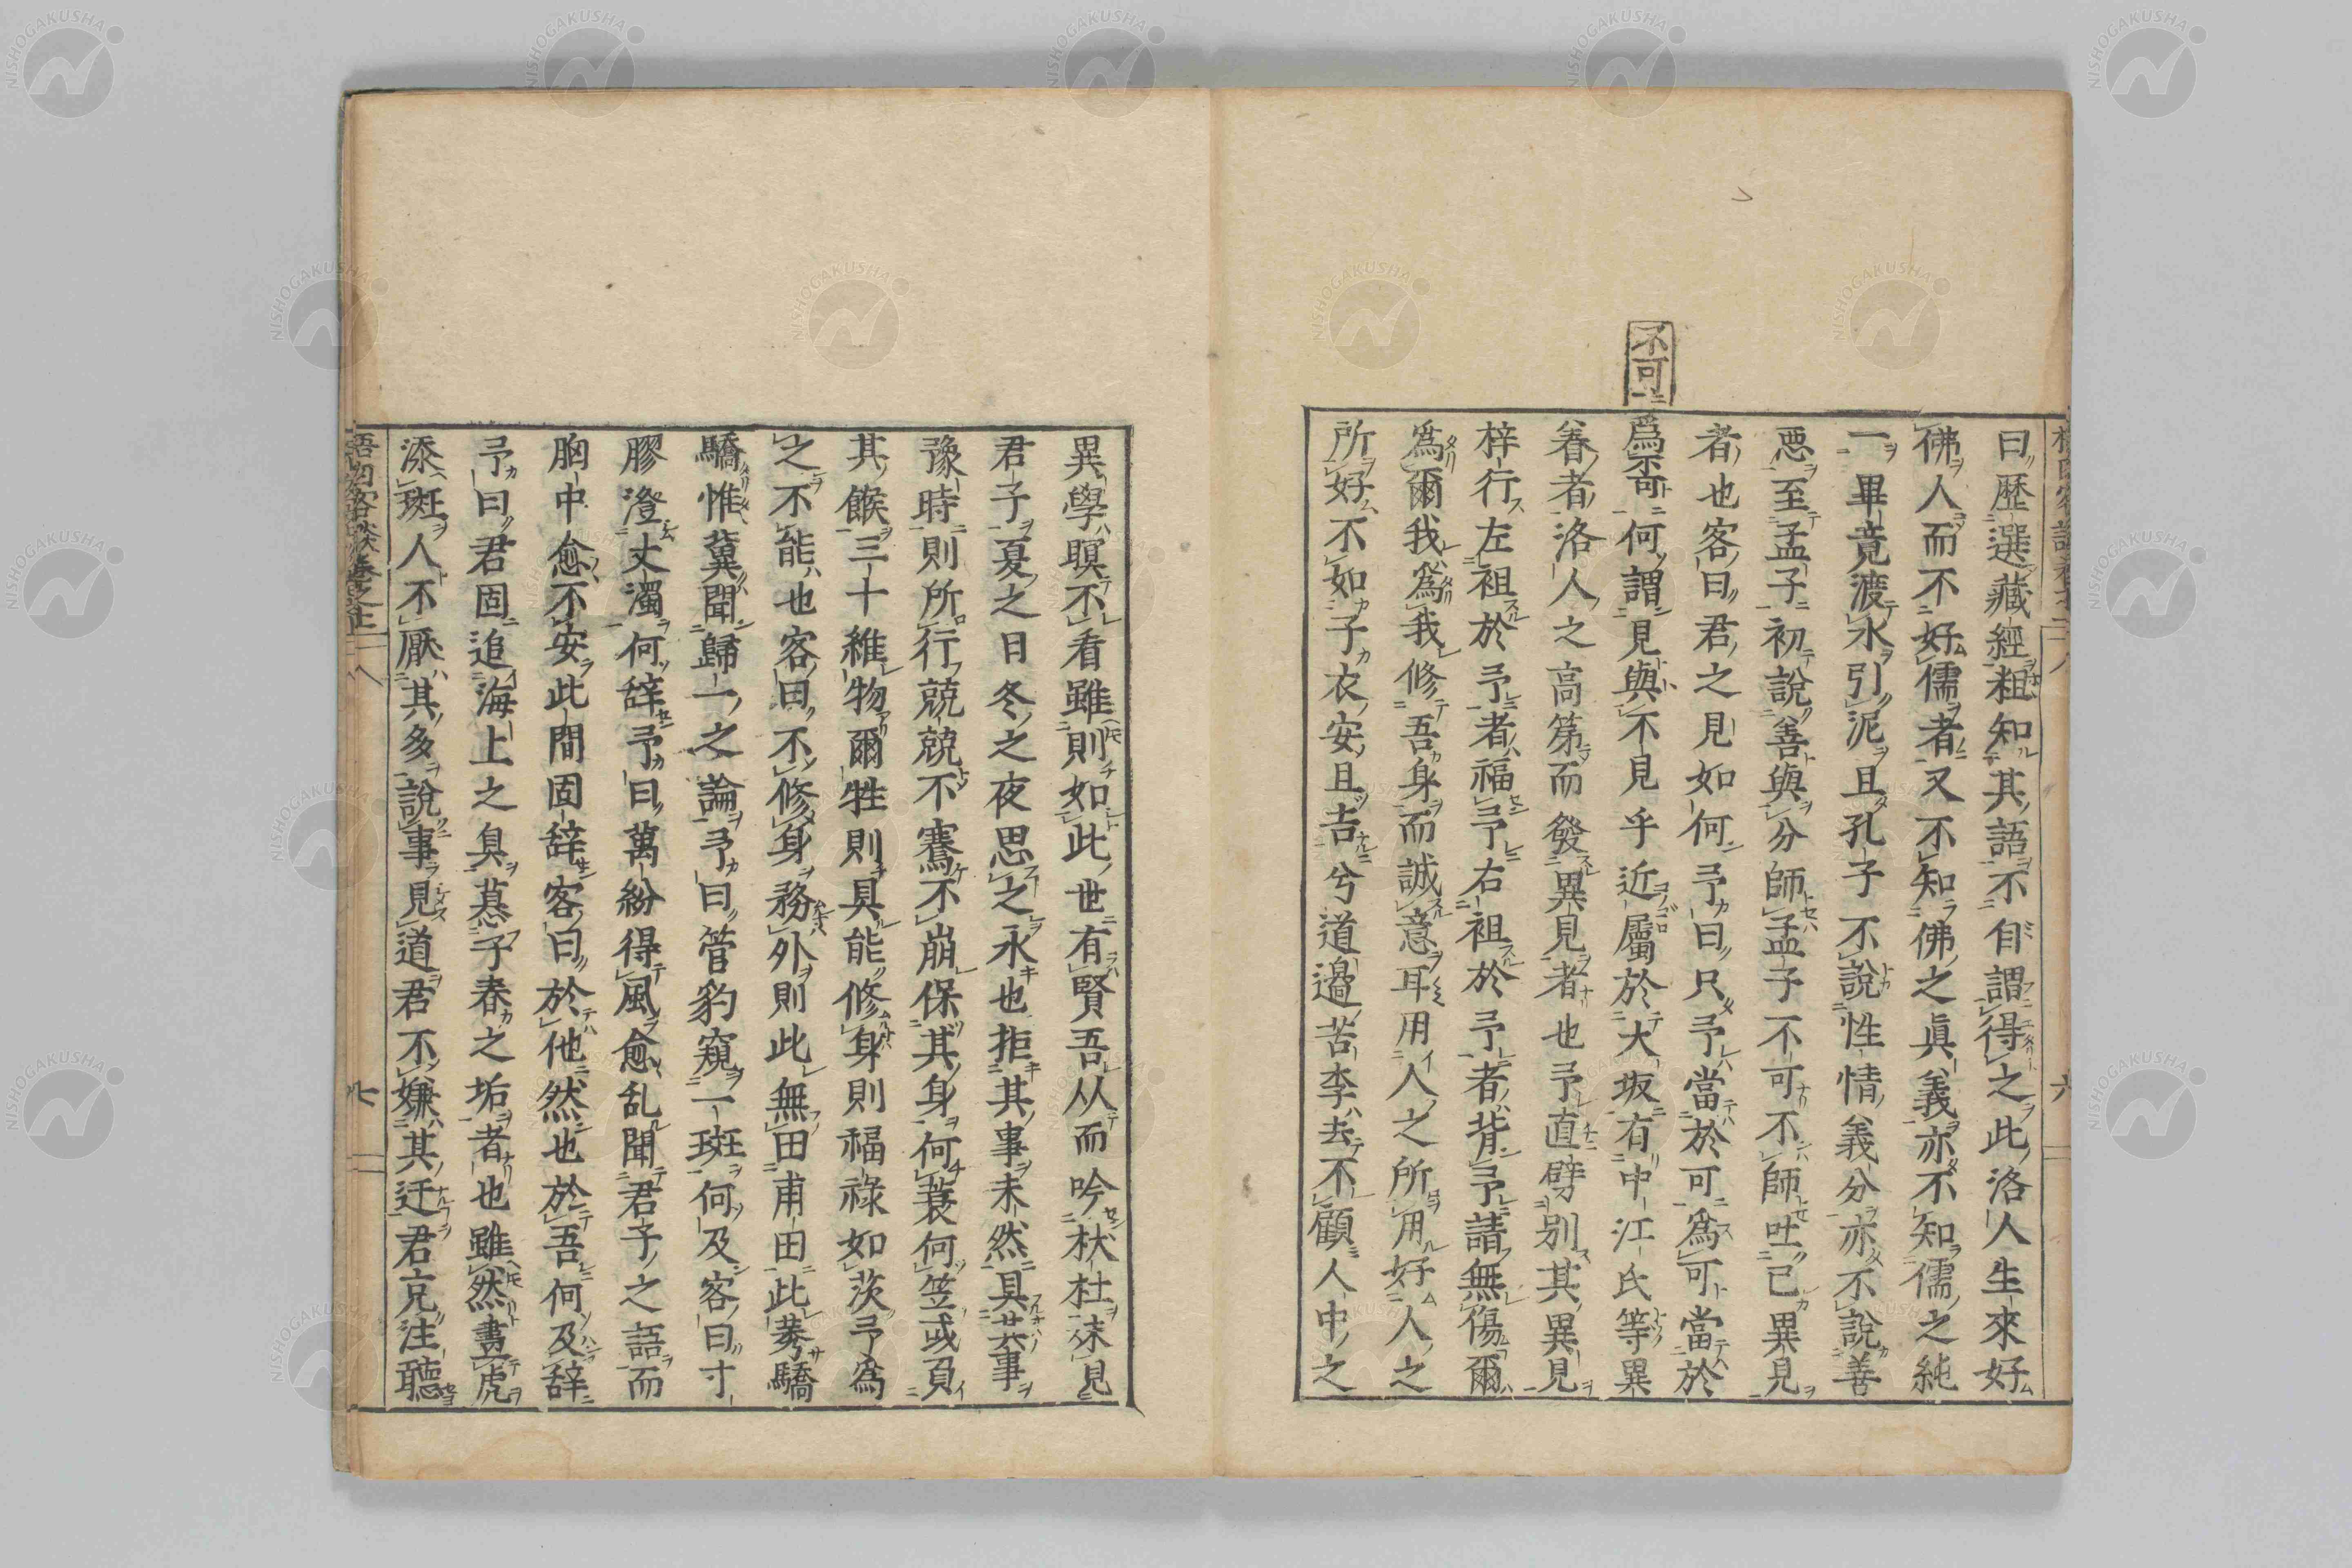 曰歷選藏經粗知其語不自謂得之此洛人生來好
佛人而不好儒者又不知佛之眞義亦不知儒之純
一畢竟渡水引泥且孔子不說性情義分亦不說善
惡至孟子初說善與分師孟子不可不師吐已異見
者也客曰君之見如何予曰只予當於可爲可當於
不可
爲否何謂見與不見乎近屬於大坂有中江氏等異
者洛人之高第而發異見者也予直劈別其異見
梓行左袒於予者福予右袒於予者背予請無傷爾
爲爾我爲我修吾身而誠意耳用人之所用好人之
所好不如子衣安且吉兮道邊苦李去不顧人中之
異學瞑不看雖則如此世有賢吾从而吟杕杜未見
君子夏之日冬之夜思之永也拒其事未然具共事
豫時則所行兢兢不騫不崩保其身何蓑何笠或負
其餱三十維物爾牲則具能修身則福祿如茨予爲
之不能也客曰不修身務外則此無田甫田此莠驕
驕惟冀聞歸一之論予曰管豹窺一斑何及客曰寸
膠澄丈濁何辞予曰萬紛得風愈乱聞君子之語而
胸中愈不安此間固辞客曰於他然也於吾何及辞
予曰君固追海上之臭慕子春之垢者也雖然畫虎
添斑人不厭其多說事見道君不嫌其迂君克注聽
NISHOGAKUSHA